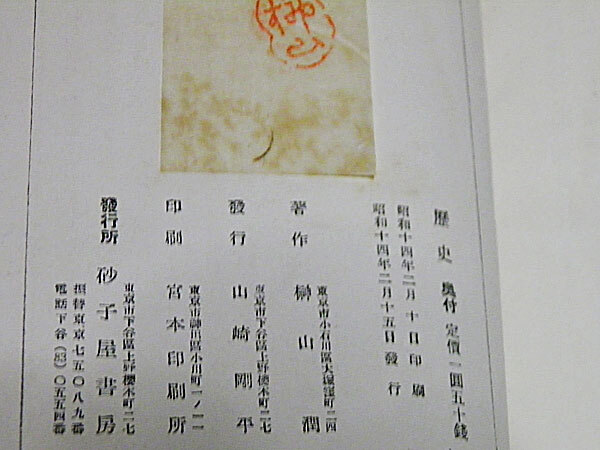 榊山
歷史 奧付 定價一圓五十錢
昭和十四年二月十日印刷
昭和十四年二月十五日發行
東京市小石川區大塚窪町二四
著作 榊山潤
東京市下谷區上野櫻木町二七
發行 山崎剛平
東京市神田區小川町一ノ一二
印刷 宮本印刷所
東京市下谷區上野櫻木町二七
發行所 砂子屋書房
振替東京七五〇八九番
電話下谷(83)〇五五四番